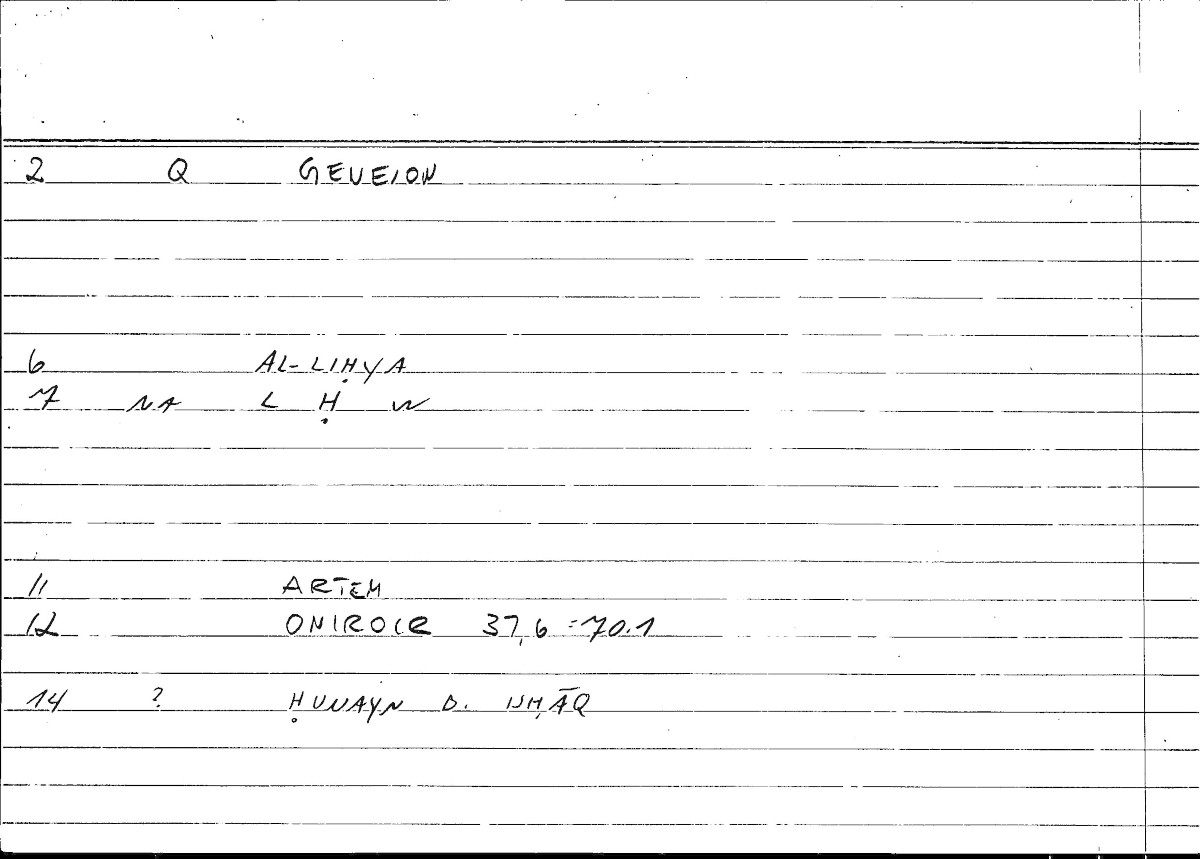 2 Q GENEION
6 AL-LIḤYA
7 NA L Ḥ W
11 ARTEM
12 ONIROCR 37,6 = 70.1
14 ? ḤUNAYN B. ISḤĀQ